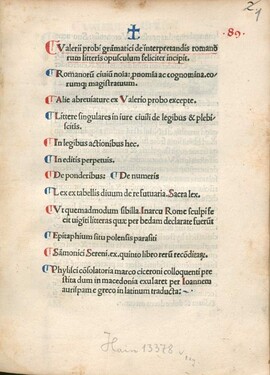 21
· 89 ·
¶ Valerii probi grāmatici de interpretandis romanorū
rum litteris opusculum feliciter incipit.
¶ Romanorū ciuiū noīa: pnomīa ac cognomina. eorumq
magistratuum.
¶ Alie abreuiature ex Valerio probo excerpte.
¶ Littere singulares in iure ciuili de legibus & plebiscitis.
¶ In legibus actionibus hec.
¶ In edictis perpetuis.
¶ De ponderibus: ¶ De numeris
¶ Lex ex tabellis diuum de re futuaria. Sacra lex.
¶ Vt quemadmodum sibilla. In arcu Rome sculpsisset
uigīti litteras quæ per bedam declarate fuerūt
¶ Epitaphium situ polensis parasiti
¶ Sāmonici Sereni. ex. quinto libro rerū recōditaʒ.
¶ Phylisci cōsolatoria marco ciceroni colloquenti prestita
dum in macedonia exularet per Ioannem
aurispam e greco in latinum traducta:~
Hain 13378